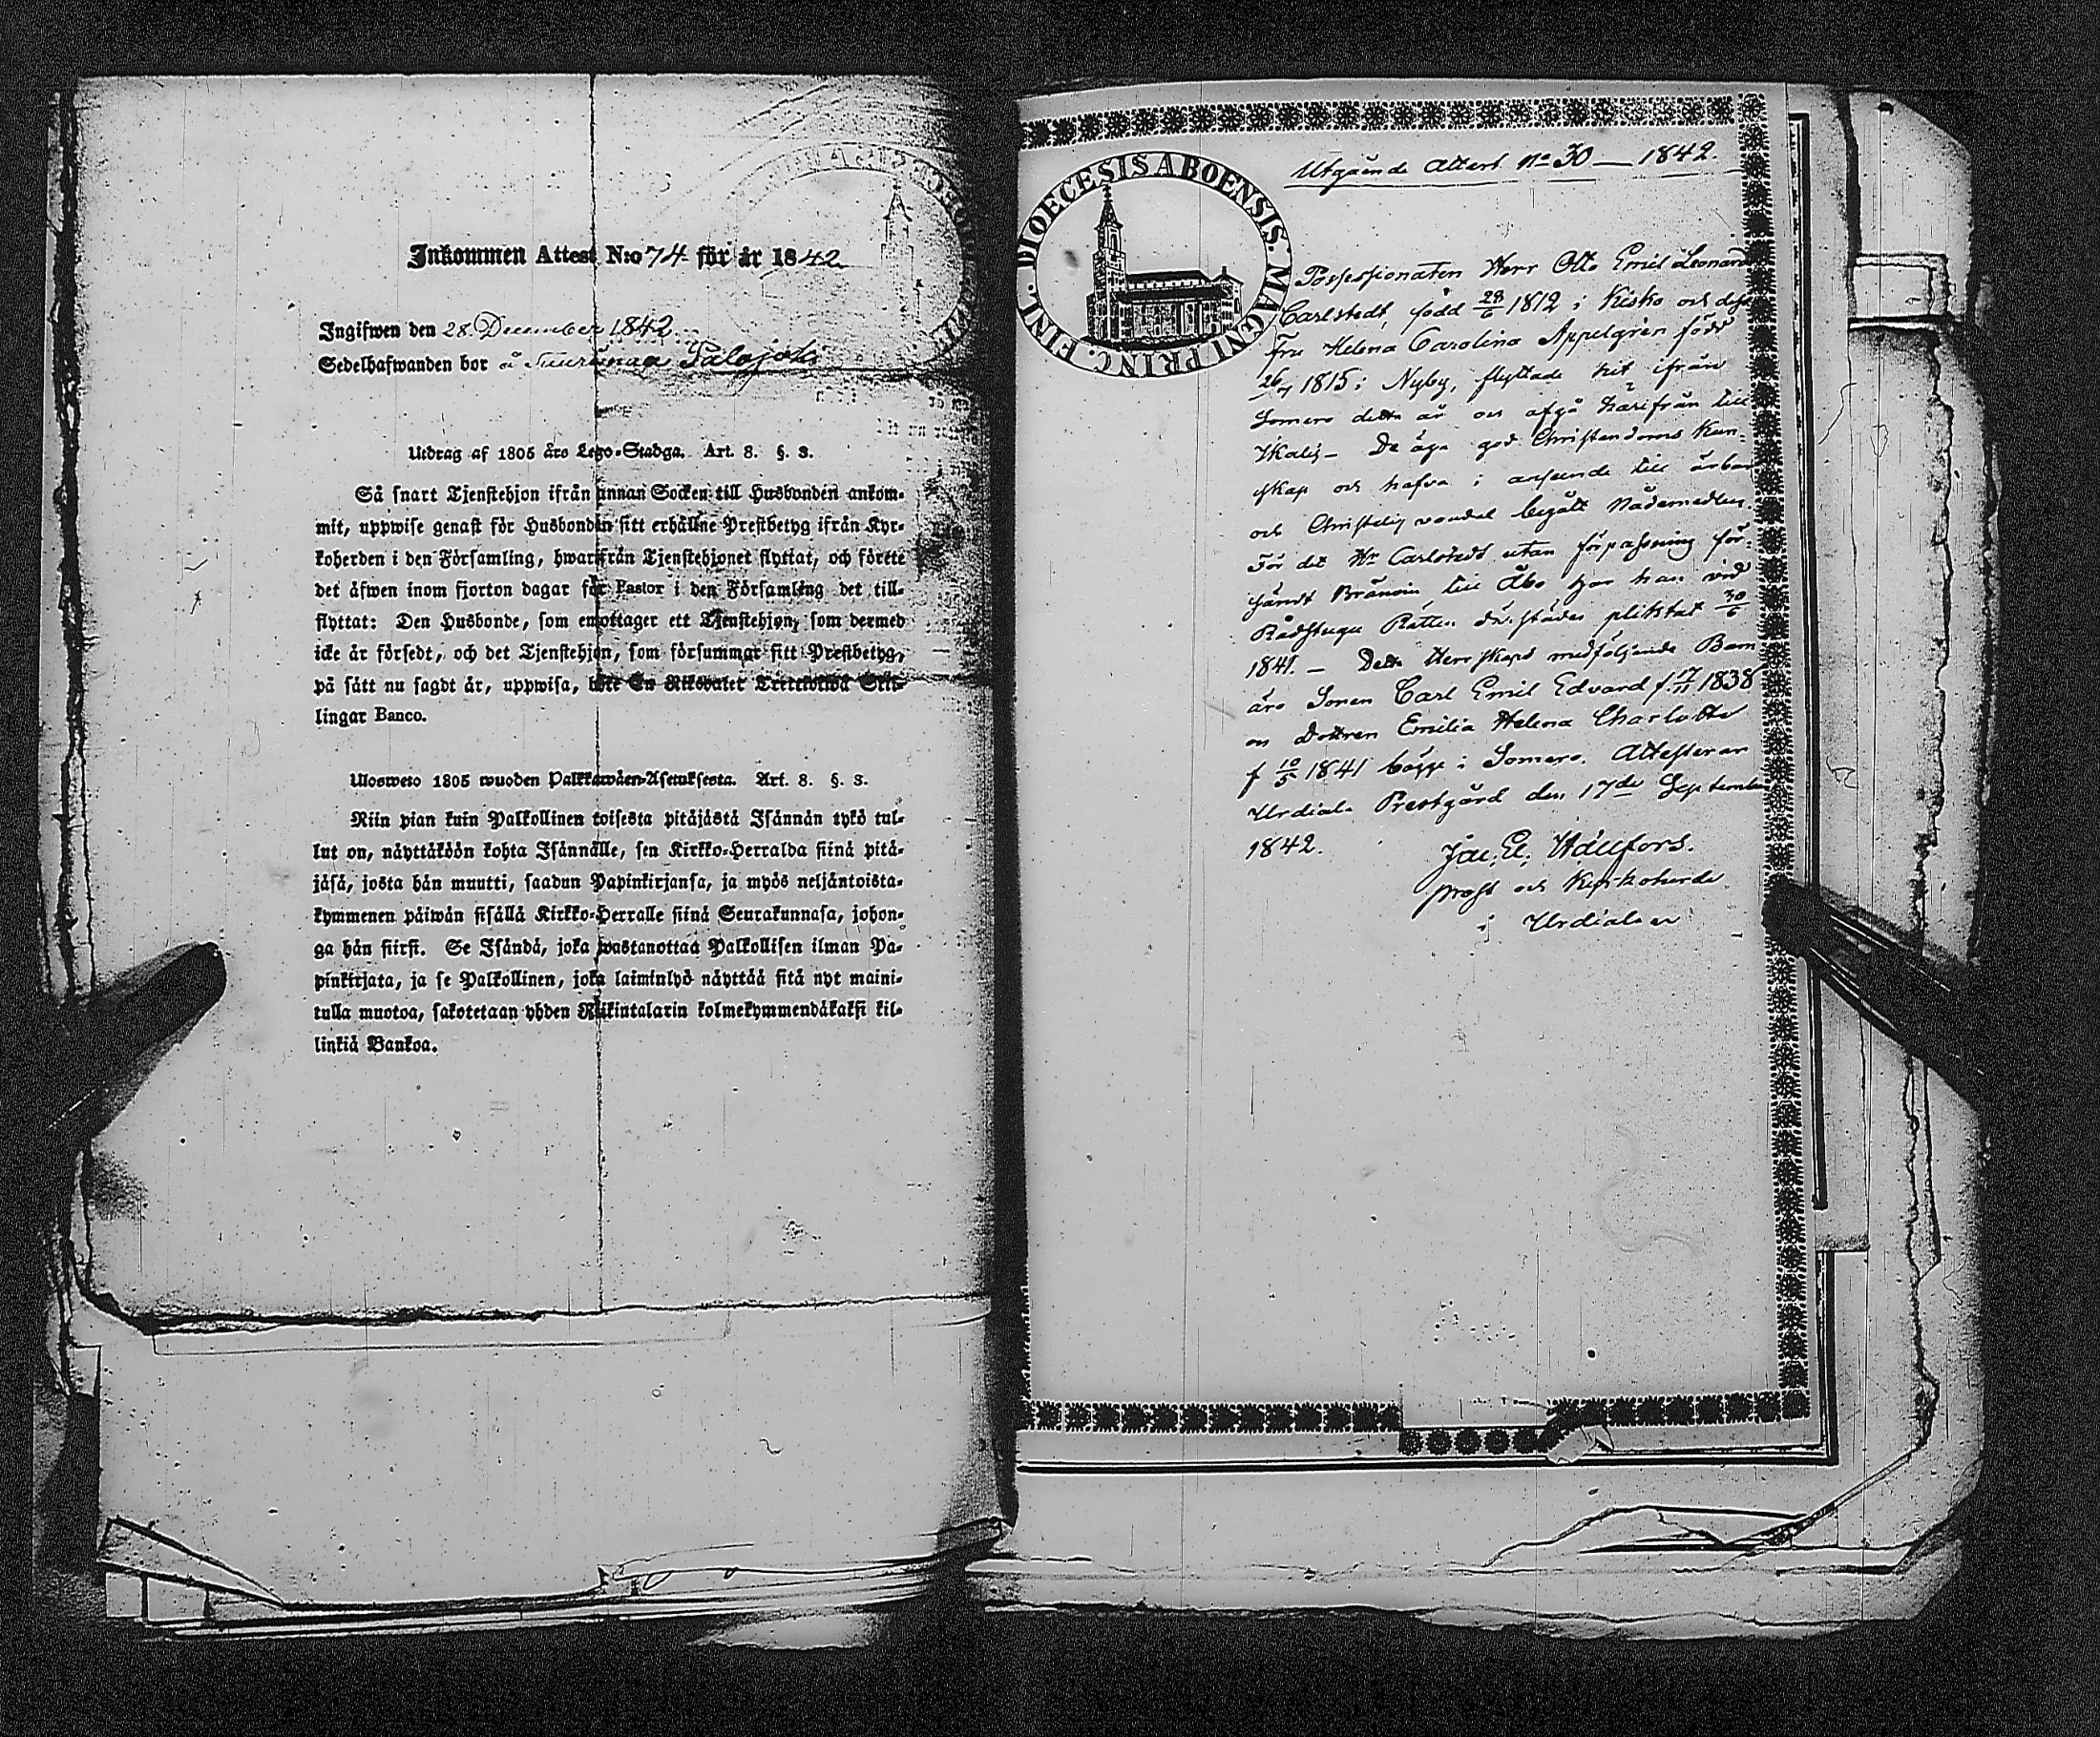 Inkommen Attest N:o 74 för år 1842
Ingifwen den 28 December 1842.
Sedelhafwanden bor å Palojoki
Utdrag af 1805 års Lego-Stadga. Art. 8. §. 3.
Så snart Tjenstehjon ifrån annan Socken till Husbonden ankom-
mit, uppwise genast för Husbonden sitt erhållne Prestbetyg ifrån Kyr-
koherden i den Församling, hwarifrån Tjenstehjonet flyttat, och förete
det äfwen inom fjorton dagar för Pastor i den Församling det till-
flyttat: Den Husbonde, som emottager ett Tjenstehjon, som dermed
icke är försedt, och det Tjenstehjon, som försummar sitt Prestbetyg,
på sätt nu sagdt är, uppwisa, böte En Riksdaler Trettiotwå Skil-
lingar Banco.
Ulosweto 1805 wuoden Palkkawäen-Asetuksesta. Art. 8. §. 3.
Niin pian kuin Palkollinen toisesta pitäjästä Isännän tykö tul-
lut on, näyttäköön kohta Isännälle, sen Kirkko-Herralda siinä pitä-
jäsä, josta hän muutti, saadun Papinkirjansa, ja myös neljäntoista-
kymmenen päiwän sisällä Kirkko-Herralle siinä Seurakunnasa, johon-
ga hän siirsi. Se Isändä, joka wastanottaa Palkollisen ilman Pa-
pinkirjata, ja se Palkollinen, joka laiminlyö näyttää sitä nyt maini-
tulla muotoa, sakotetaan yhden Riikintalarin kolmekymmendäkaksi kil-
linkiä Bankoa.
DIOECESIS ABOENSIS. MAGNI PRINC. FINL.
Utgående Attest No 30 — 1842.
Possessionaten Herr Otto Emil Leonard
Carlstedt, född 28/6 1812 i Kisko och dess
Fru Helena Carolina Appelgren född
26/7 1815 i Nyby, flyttade hit ifrån
Somero detta år och afgå härifrån till
De äga god Christendoms Kun-
skap och hafva i anseende till ärbar
och Christelig vandel begått Nådemedlen.
För det Hr Carlstedt utan förpassning för-
sändt Bränvin till Åbo har han vid
Rådstugu Rätten därstädes pliktat 30/6
1841. — Detta Herrskaps medföljande Barn
äro Sonen Carl Emil Edvard f. 17/11 1838
och Dottren Emilia Helena Charlotta
f 10/5 1841 bägge i Somero. Attesterar
Urdiala Prestgård den 17de September
1842.
Jac. E. Hällfors.
prost och Kyrkoherde
i Urdiala